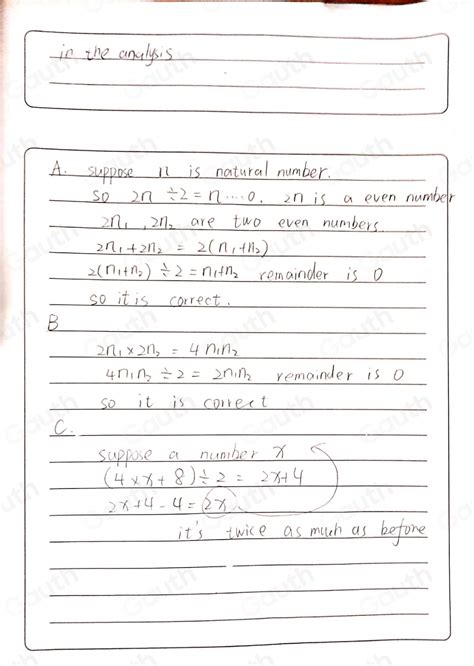 in the analysis
A. suppose n is natural number.
so 2n ÷2 = n ····0. 2n is a even number
2n₁, 2n₂ are two even numbers.
2n₁+2n₂ = 2(n₁+n₂)
2(n₁+n₂) ÷2 = n₁+n₂ remainder is 0
so it is correct.
B
2n₁×2n₂ = 4n₁n₂
4n₁n₂ ÷2 = 2n₁n₂ remainder is 0
so it is correct
C.
suppose a number x
(4×x+8)÷2 = 2x+4
2x+4-4=2x
it's twice as much as before